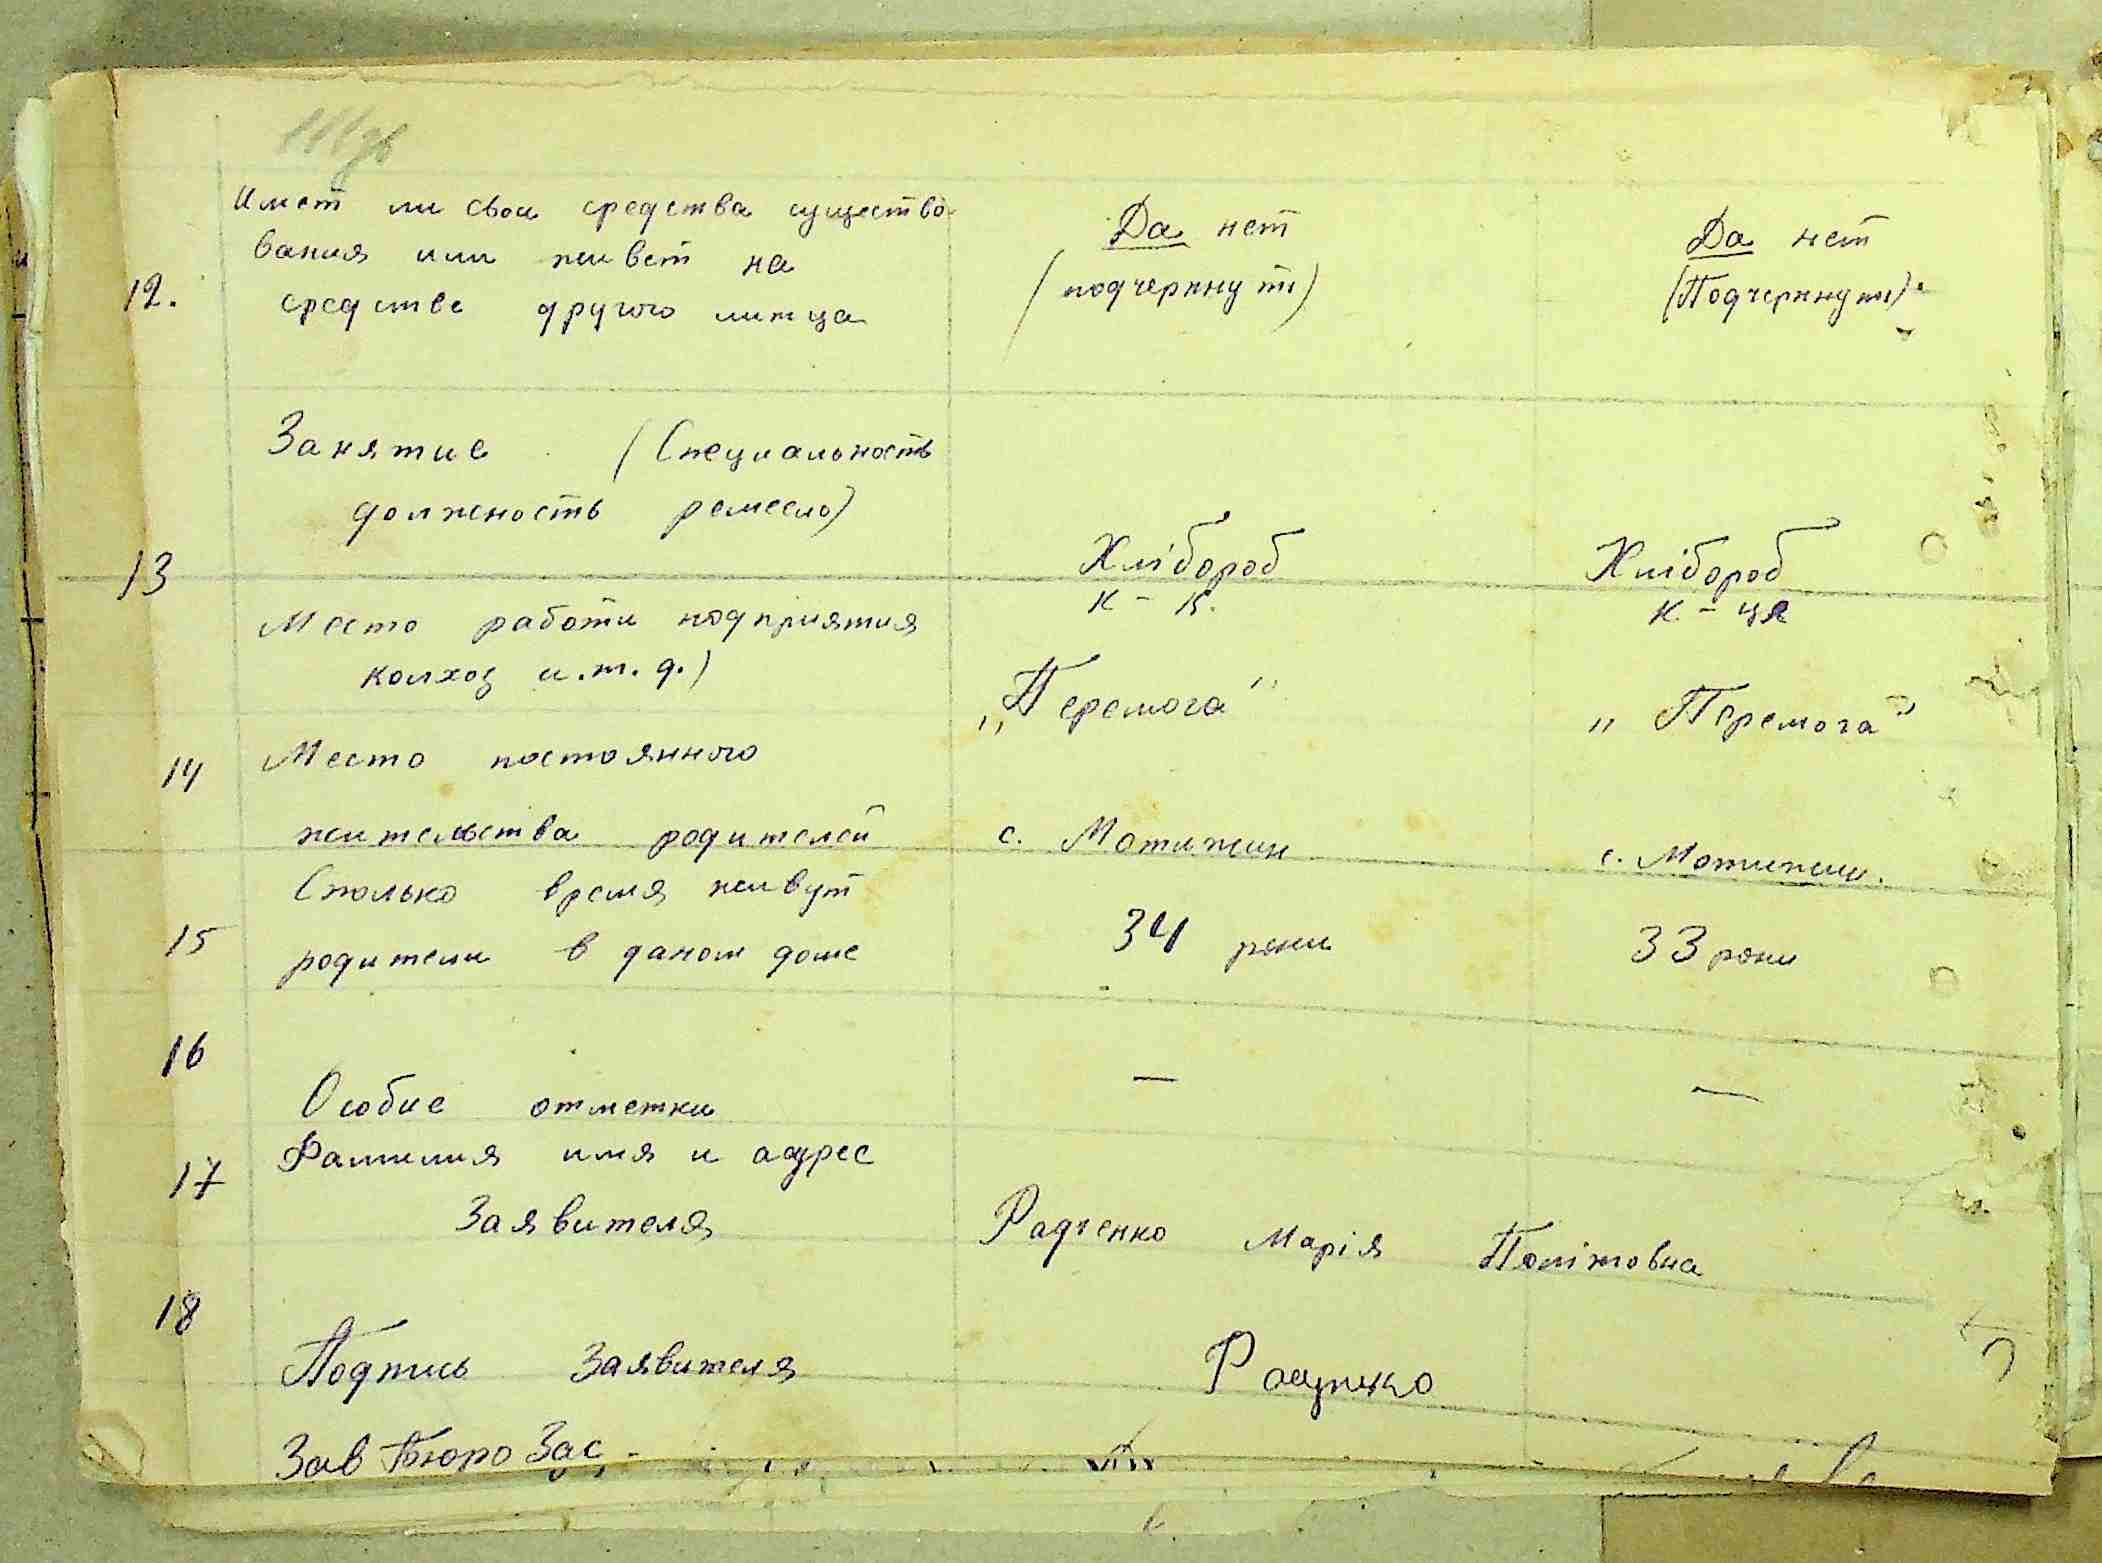 Имет ли свои средства существо-
вания или живет на
12. средстве другого литца
Да нет
(подчеркнути)
Да нет
(Подчеркнути).
Занятие (Специальность
должность ремесло)
13
Хлібороб
к-к.
Хлібороб
к-ця
Место работи подприятия
колхоз и.т.д.)
14
„Перемога"
„Перемога"
Место постоянного
жительства родителей
с. Мотижин
с. Мотижин.
Сколько время живут
15 родители в даном доме
34 роки
33 роки
16
Особие отметки
—
—
17 Фамилия имя и адрес
Заявителя
Радченко Марія Поліковна
18
Подпись Заявителя
Зав Бюро Зас